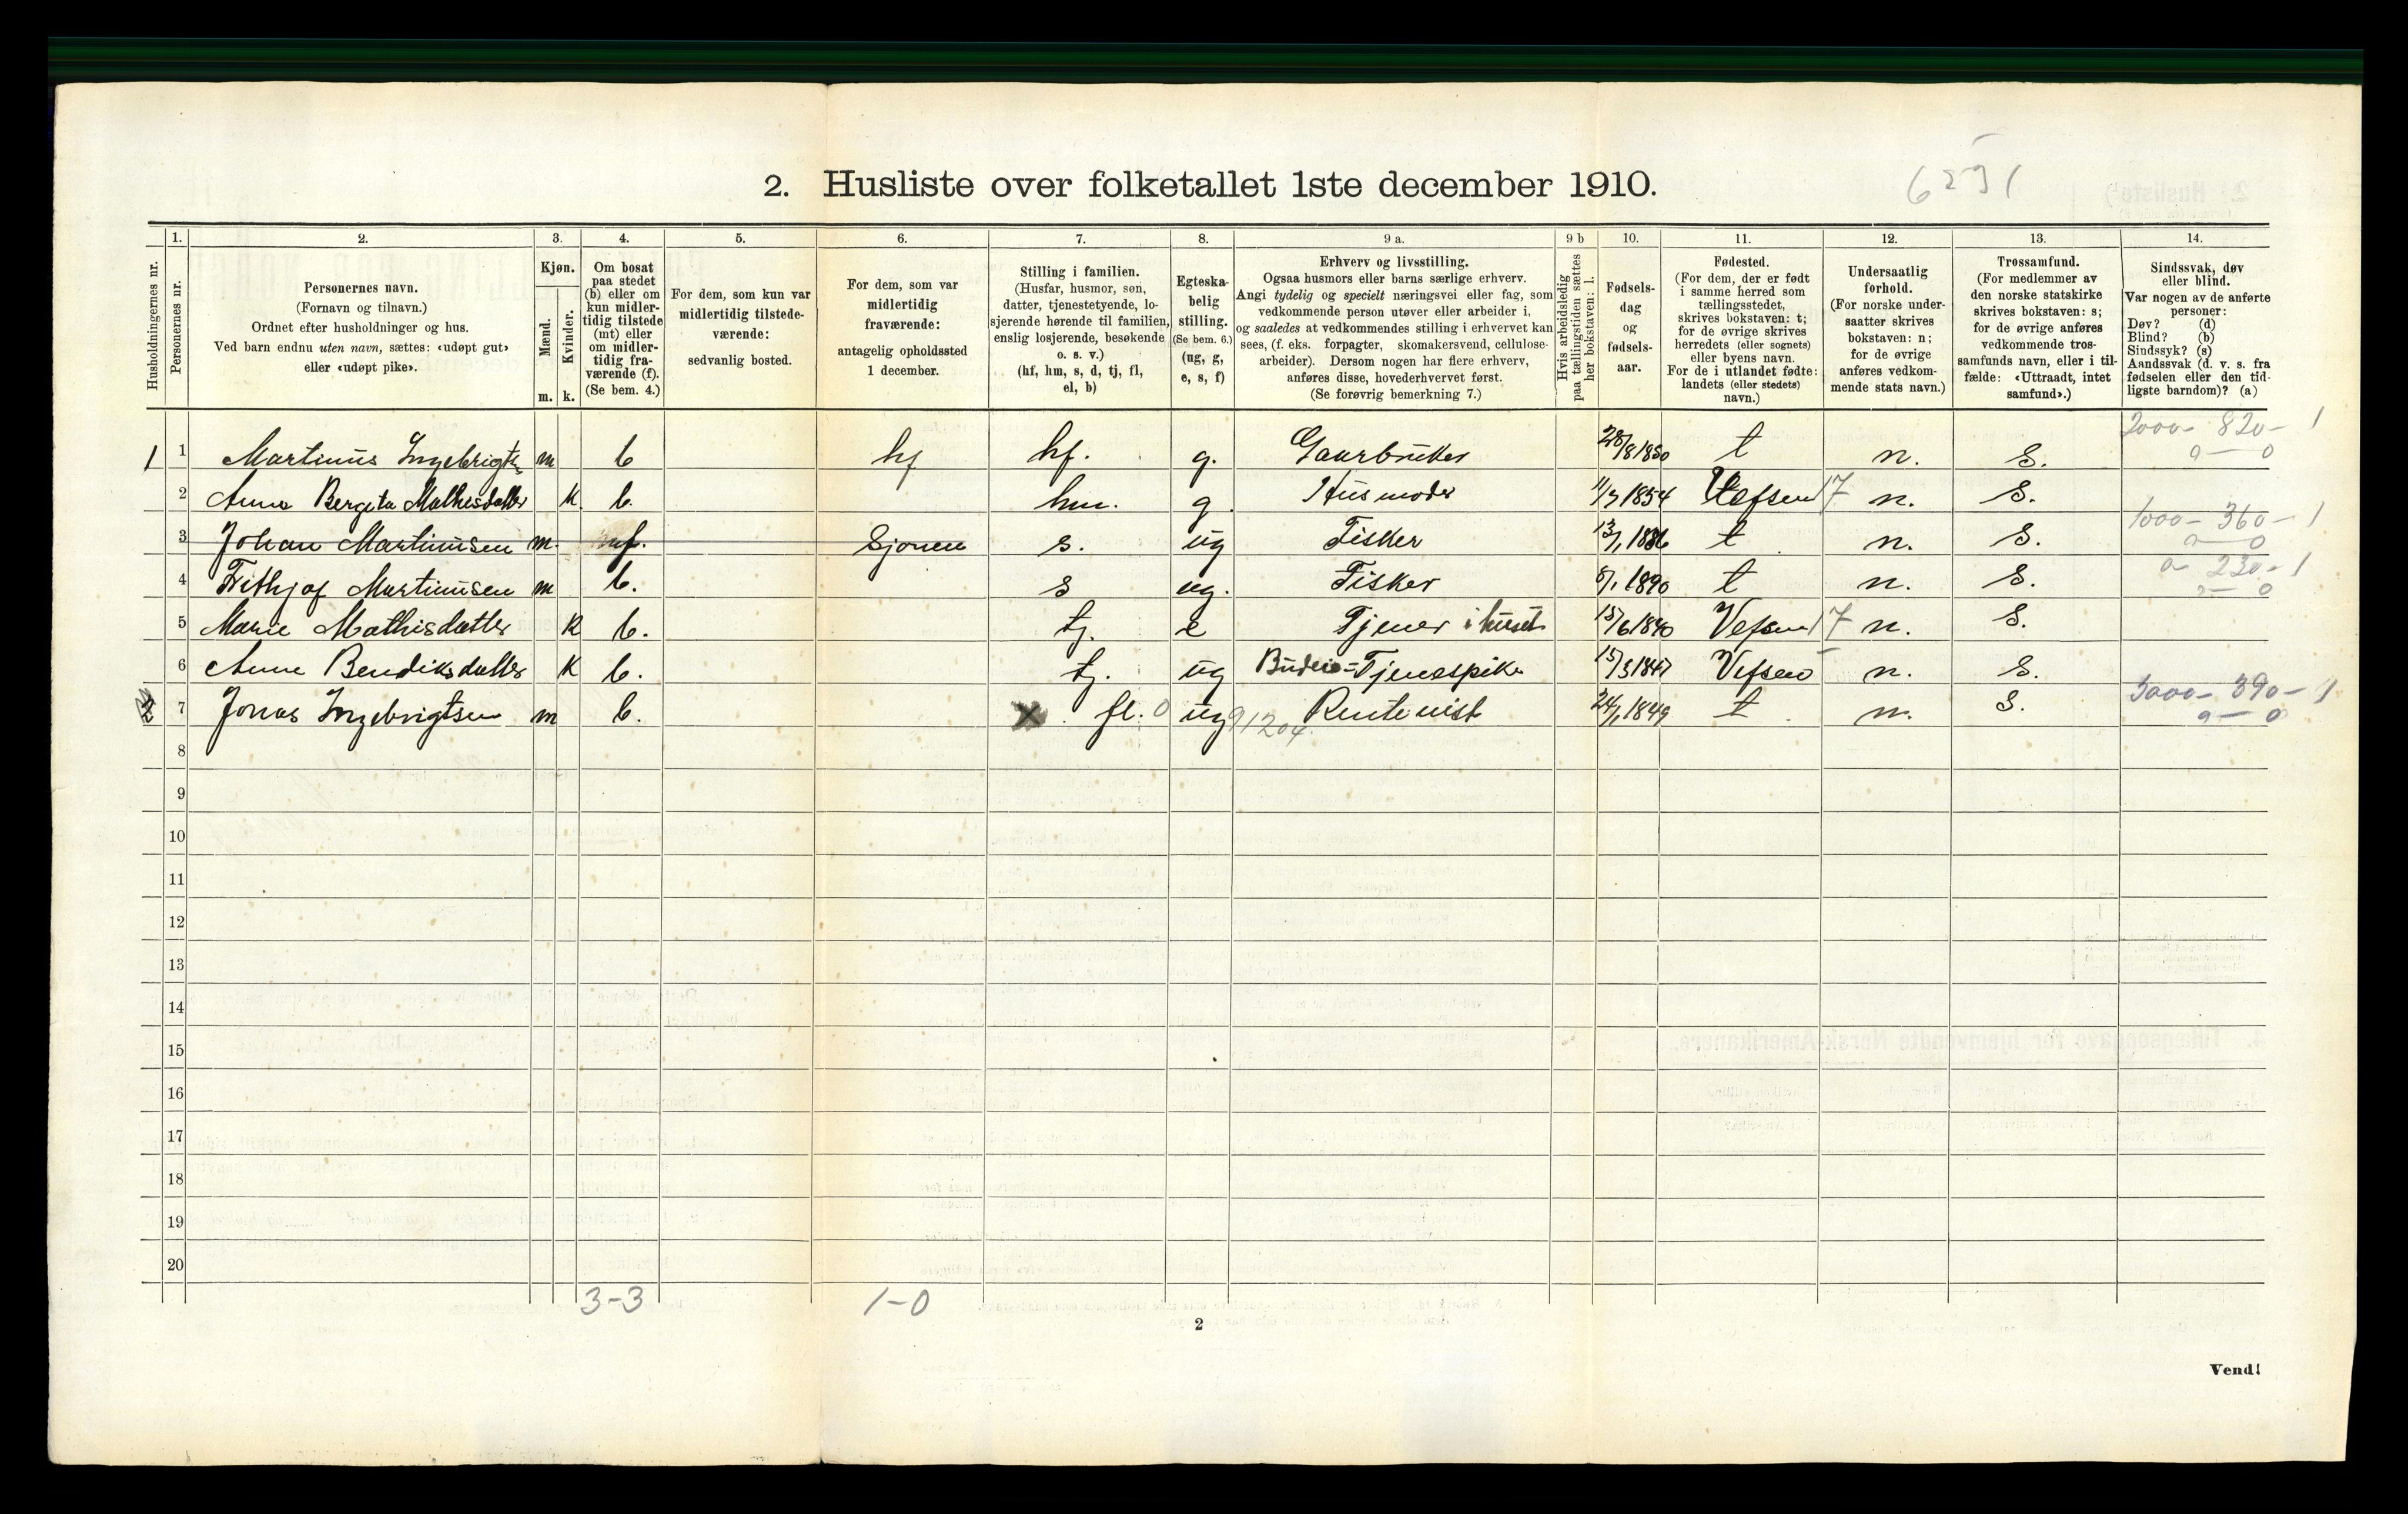 6231
2. Husliste over folketallet 1ste december 1910.
Husholdningernes nr. | 1. Personernes nr. | 2. Personernes navn. (Fornavn og tilnavn.) Ordnet efter husholdninger og hus. Ved barn endnu uten navn, sættes: «udøpt gut» eller «udøpt pike». | 3. Kjøn. Mænd. m. Kvinder. k. | 4. Om bosat paa stedet (b) eller om kun midlertidig tilstede (mt) eller om midlertidig fraværende (f). (Se bem. 4.) | 5. For dem, som kun var midlertidig tilstedeværende: sedvanlig bosted. | 6. For dem, som var midlertidig fraværende: antagelig opholdssted 1 december. | 7. Stilling i familien. (Husfar, husmor, søn, datter, tjenestetyende, losjerende hørende til familien, enslig losjerende, besøkende o. s. v.) (hf, hm, s, d, tj, fl, el, b) | 8. Egteskabelig stilling. (Se bem. 6.) (ug, g, e, s, f) | 9 a. Erhverv og livsstilling. Ogsaa husmors eller barns særlige erhverv. Angi tydelig og specielt næringsvei eller fag, som vedkommende person utøver eller arbeider i, og saaledes at vedkommendes stilling i erhvervet kan sees, (f. eks. forpagter, skomakersvend, cellulosearbeider). Dersom nogen har flere erhverv, anføres disse, hovederhvervet først. (Se forøvrig bemerkning 7.) | 9 b Hvis arbeidsledig paa tællingstiden sættes her bokstaven: l. | 10. Fødselsdag og fødselsaar. | 11. Fødested. (For dem, der er født i samme herred som tællingsstedet, skrives bokstaven: t; for de øvrige skrives herredets (eller sognets) eller byens navn. For de i utlandet fødte: landets (eller stedets) navn.) | 12. Undersaatlig forhold. (For norske undersaatter skrives bokstaven: n; for de øvrige anføres vedkommende stats navn.) | 13. Trossamfund. (For medlemmer av den norske statskirke skrives bokstaven: s; for de øvrige anføres vedkommende trossamfunds navn, eller i tilfælde: «Uttraadt, intet samfund».) | 14. Sindssvak, døv eller blind. Var nogen av de anførte personer: Døv? (d) Blind? (b) Sindssyk? (s) Aandssvak (d. v. s. fra fødselen eller den tidligste barndom)? (a)
1 | 1 | Martinus Ingebrigts | m | b | hf | hf. | g. | Gaarbruker | 28/8 1850 | t | n. | S. | 2000- 820- 1 0 — 0
2 | Anna Bergita Mathisdatter | K. | b. | hm. | g. | Husmoder | 11/7 1854 | Vefsen 17 | n. | S.
3 | Johan Martinusen | m. | mf. | Sjonen | s. | ug | Fisker | 13/1 1886 | t | n. | S. | 1000- 360- 1 0 — 0
4 | Frithjof Martinusen | m | b. | s | ug. | Fisker | 8/1 1890 | t | n. | S. | 0- 230- 1 0 — 0
5 | Marie Mathisdatter | K | b. | tj. | e | Tjener i huset | 15/6 1840 | Vefsen 17 | n. | S.
6 | Anne Bendiksdatter | K | b. | tj. | ug | Budeie = Tjenespike | 15/3 1847 | Vefsen | n. | S.
7 | Jonas Ingebrigtsen | m | b. | X fl. 0 | ug | 91204 Rentenist | 24/1 1849 | t | n. | S. | 3000- 390- 1 0 — 0
8
9
10
11
12
13
14
15
16
17
18
19
20
3-3 1-0
2
Vend!